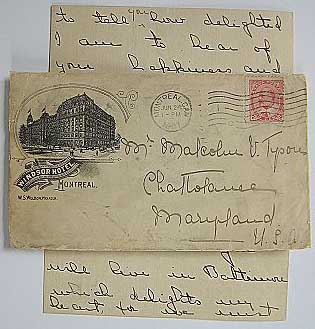 to tell you how delighted
I am to hear of
your happiness and
MONTREAL, CAN.
JUN 24
1-PM
WINDSOR HOTEL
MONTREAL.
W.S. WELDON, MANAGER
Mr Malcolm V. Tyson
Chattolanee
Maryland
U.S.A
will live in Baltimore
which delights my
heart, for we must